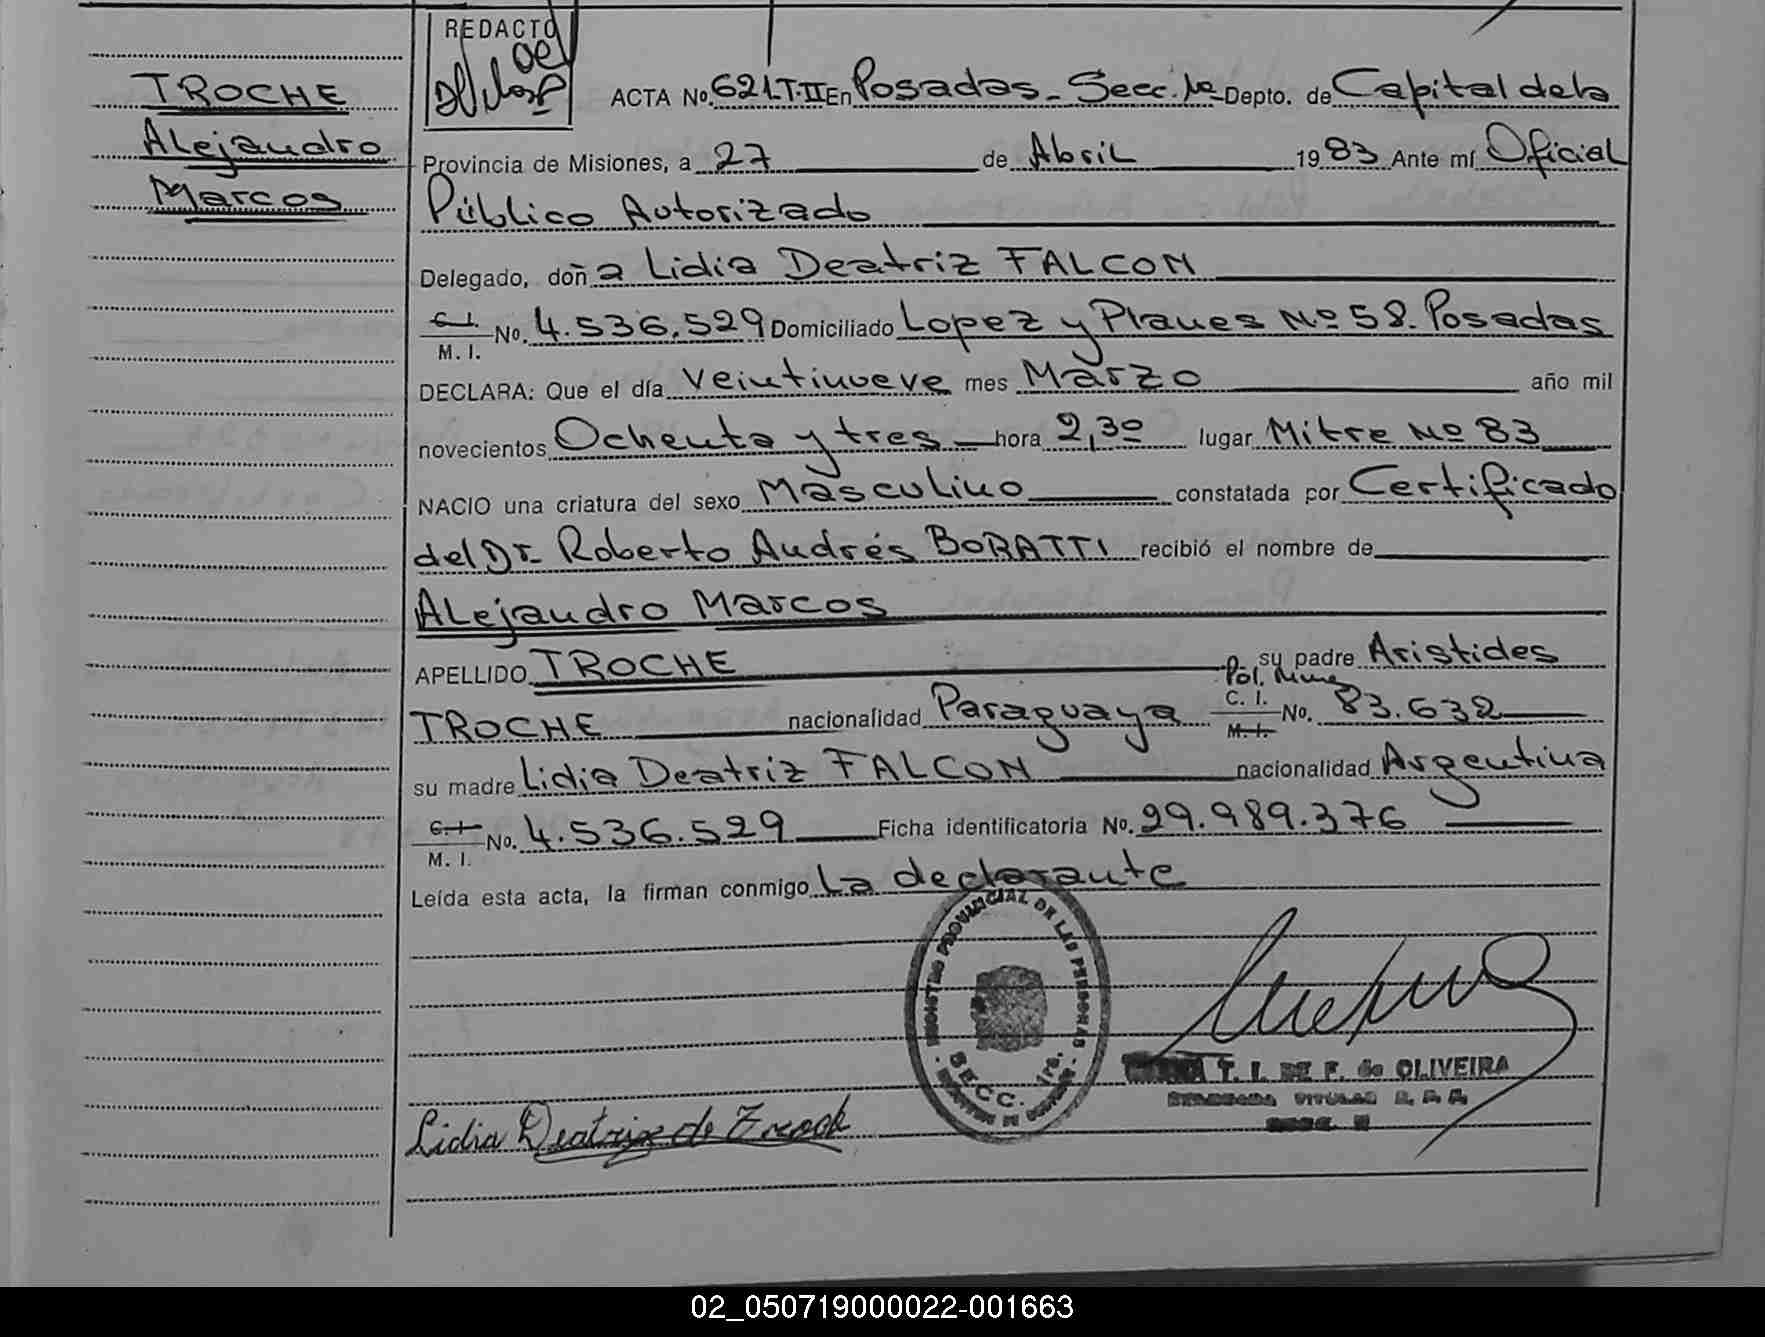 REDACTO
TROCHE
Alejandro
Marcos
ACTA No. 621.T-II En Posadas - Secc. 1a Depto. de Capital de la
Provincia de Misiones, a 27 de Abril 1983 Ante mí Oficial
Público Autorizado
Delegado, doña Lidia Deatriz FALCON
C.I. No. 4.536.529 Domiciliado Lopez y Planes Nº 58. Posadas
M. I.
DECLARA: Que el día veintinueve mes Marzo año mil
novecientos Ochenta y tres hora 2,30 lugar Mitre Nº 83
NACIO una criatura del sexo Masculino constatada por Certificado
del Dr. Roberto Andrés BORATTI recibió el nombre de
Alejandro Marcos
APELLIDO TROCHE su padre Aristides
Pol.
TROCHE nacionalidad Paraguaya C. I. No. 83.632
M. I.
su madre Lidia Deatriz FALCON nacionalidad Argentina
C.I. No. 4.536.529 Ficha identificatoria No. 29.989.376
M. I.
Leída esta acta, la firman conmigo La declarante
REGISTRO PROVINCIAL DE LAS PERSONAS
SECC. 1ra.
T. I. DE F. de OLIVEIRA
TITULAR
Lidia Deatriz de
02_050719000022-001663